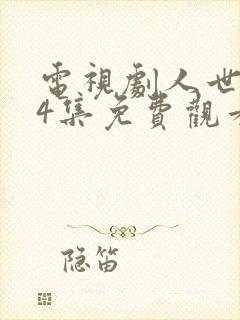 電視劇人世
4集免費觀看
隐笛